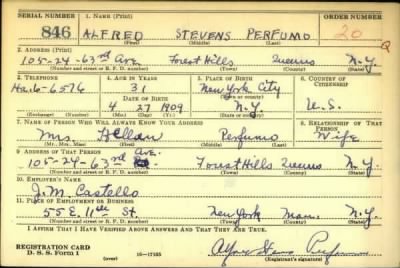 SERIAL NUMBER 1. NAME (Print) ORDER NUMBER
846 ALFRED STEVENS PERFUMO 20
(First) (Middle) (Last)
2. ADDRESS (Print)
105-24-63rd Ave Forest Hills Queens N.Y.
(Number and street or R. F. D. number) (Town) (County) (State)
3. TELEPHONE 4. AGE IN YEARS 5. PLACE OF BIRTH 6. COUNTRY OF CITIZENSHIP
31 New York City
Ha.6-6576 DATE OF BIRTH (Town or county)
4 27 1909 N.Y. U.S.
(Exchange) (Number) (Mo.) (Day) (Yr.) (State or country)
7. NAME OF PERSON WHO WILL ALWAYS KNOW YOUR ADDRESS 8. RELATIONSHIP OF THAT PERSON
Mrs. Perfumo Wife
(Mr., Mrs., Miss) (First) (Middle) (Last)
9. ADDRESS OF THAT PERSON
105-24-63rd Ave. Forest Hills Queens N.Y.
(Number and street or R. F. D. number) (Town) (County) (State)
10. EMPLOYER'S NAME
J.M. Castello
11. PLACE OF EMPLOYMENT OR BUSINESS
55 E. 11th St. New York Man. N.Y.
(Number and street or R. F. D. number) (Town) (County) (State)
I AFFIRM THAT I HAVE VERIFIED ABOVE ANSWERS AND THAT THEY ARE TRUE.
REGISTRATION CARD
D. S. S. Form 1 (over) 16-17105 (Registrant's signature)